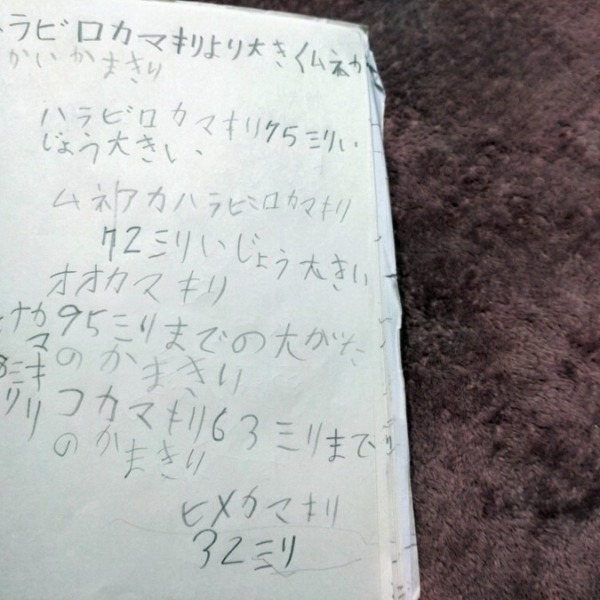 ハラビロカマキリより大きくムネカ
かいかまきり
ハラビロカマキリ75ミリい
じょう大きい、
ムネアカハラビロカマキリ
72ミリいじょう大きい
オオカマキリ
95ミリまでの大がた
のかまきり
コカマキリ63ミリまで
のかまきり
ヒメカマキリ
32ミリ